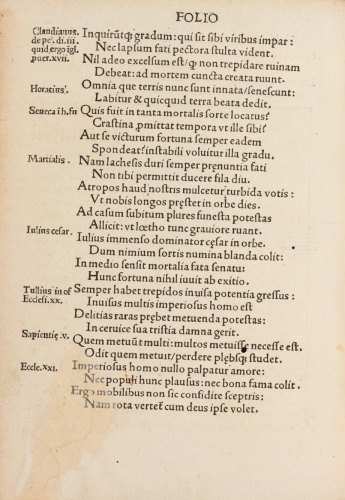 FOLIO
Claudianus. Inquirūtq̄ gradum: qui sit sibi viribus impar:
de pe. di. iii Nec lapsum fati pectora stulta vident.
quid ergo igl. Nil adeo excelsum est/q̄ non trepidare ruinam
puer. xvii. Debeat: ad mortem cuncta creata ruunt.
Omnia que terris nunc sunt innata/senescunt:
Horatius'. Labitur & quicquid terra beata dedit.
Seneca i h. fu Quis fuit in tanta mortalis sorte locatus?
Crastina, ꝓmittat tempora vt ille sibi?
Aut se victurum fortuna semper eadem
Spondeat? instabili voluitur illa gradu.
Martialis. Nam lachesis duri semper prenuntia fati
Non tibi permittit ducere fila diu.
Atropos haud nostris mulcetur turbida votis:
Vt nobis longos prestet in orbe dies.
Ad casum subitum plures funesta potestas
Allicit: vt lœtho tunc grauiore ruant.
Iulius cesar. Iulius immenso dominator cęsar in orbe.
Dum nimium sortis numina blanda colit:
In medio sensit mortalia fata senatu:
Hunc fortuna nihil iuuit ab exitio.
Tullius in of Semper habet trepidos inuisa potentia gressus:
Ecclesi. xx. Inuisus multis imperiosus homo est
Delitias raras prębet metuenda potestas:
In ceruice sua tristia damna gerit.
Sapientię .v. Quem metuūt multi: multos metuisse necesse est.
Odit quem metuit/perdere plębsq̄ studet.
Eccle. xxi. Imperiosus homo nullo palpatur amore:
Nec populi hunc plausus: nec bona fama colit.
Ergo mobilibus non sic confidite sceptris:
Nam rota vertet cum deus ipse volet.